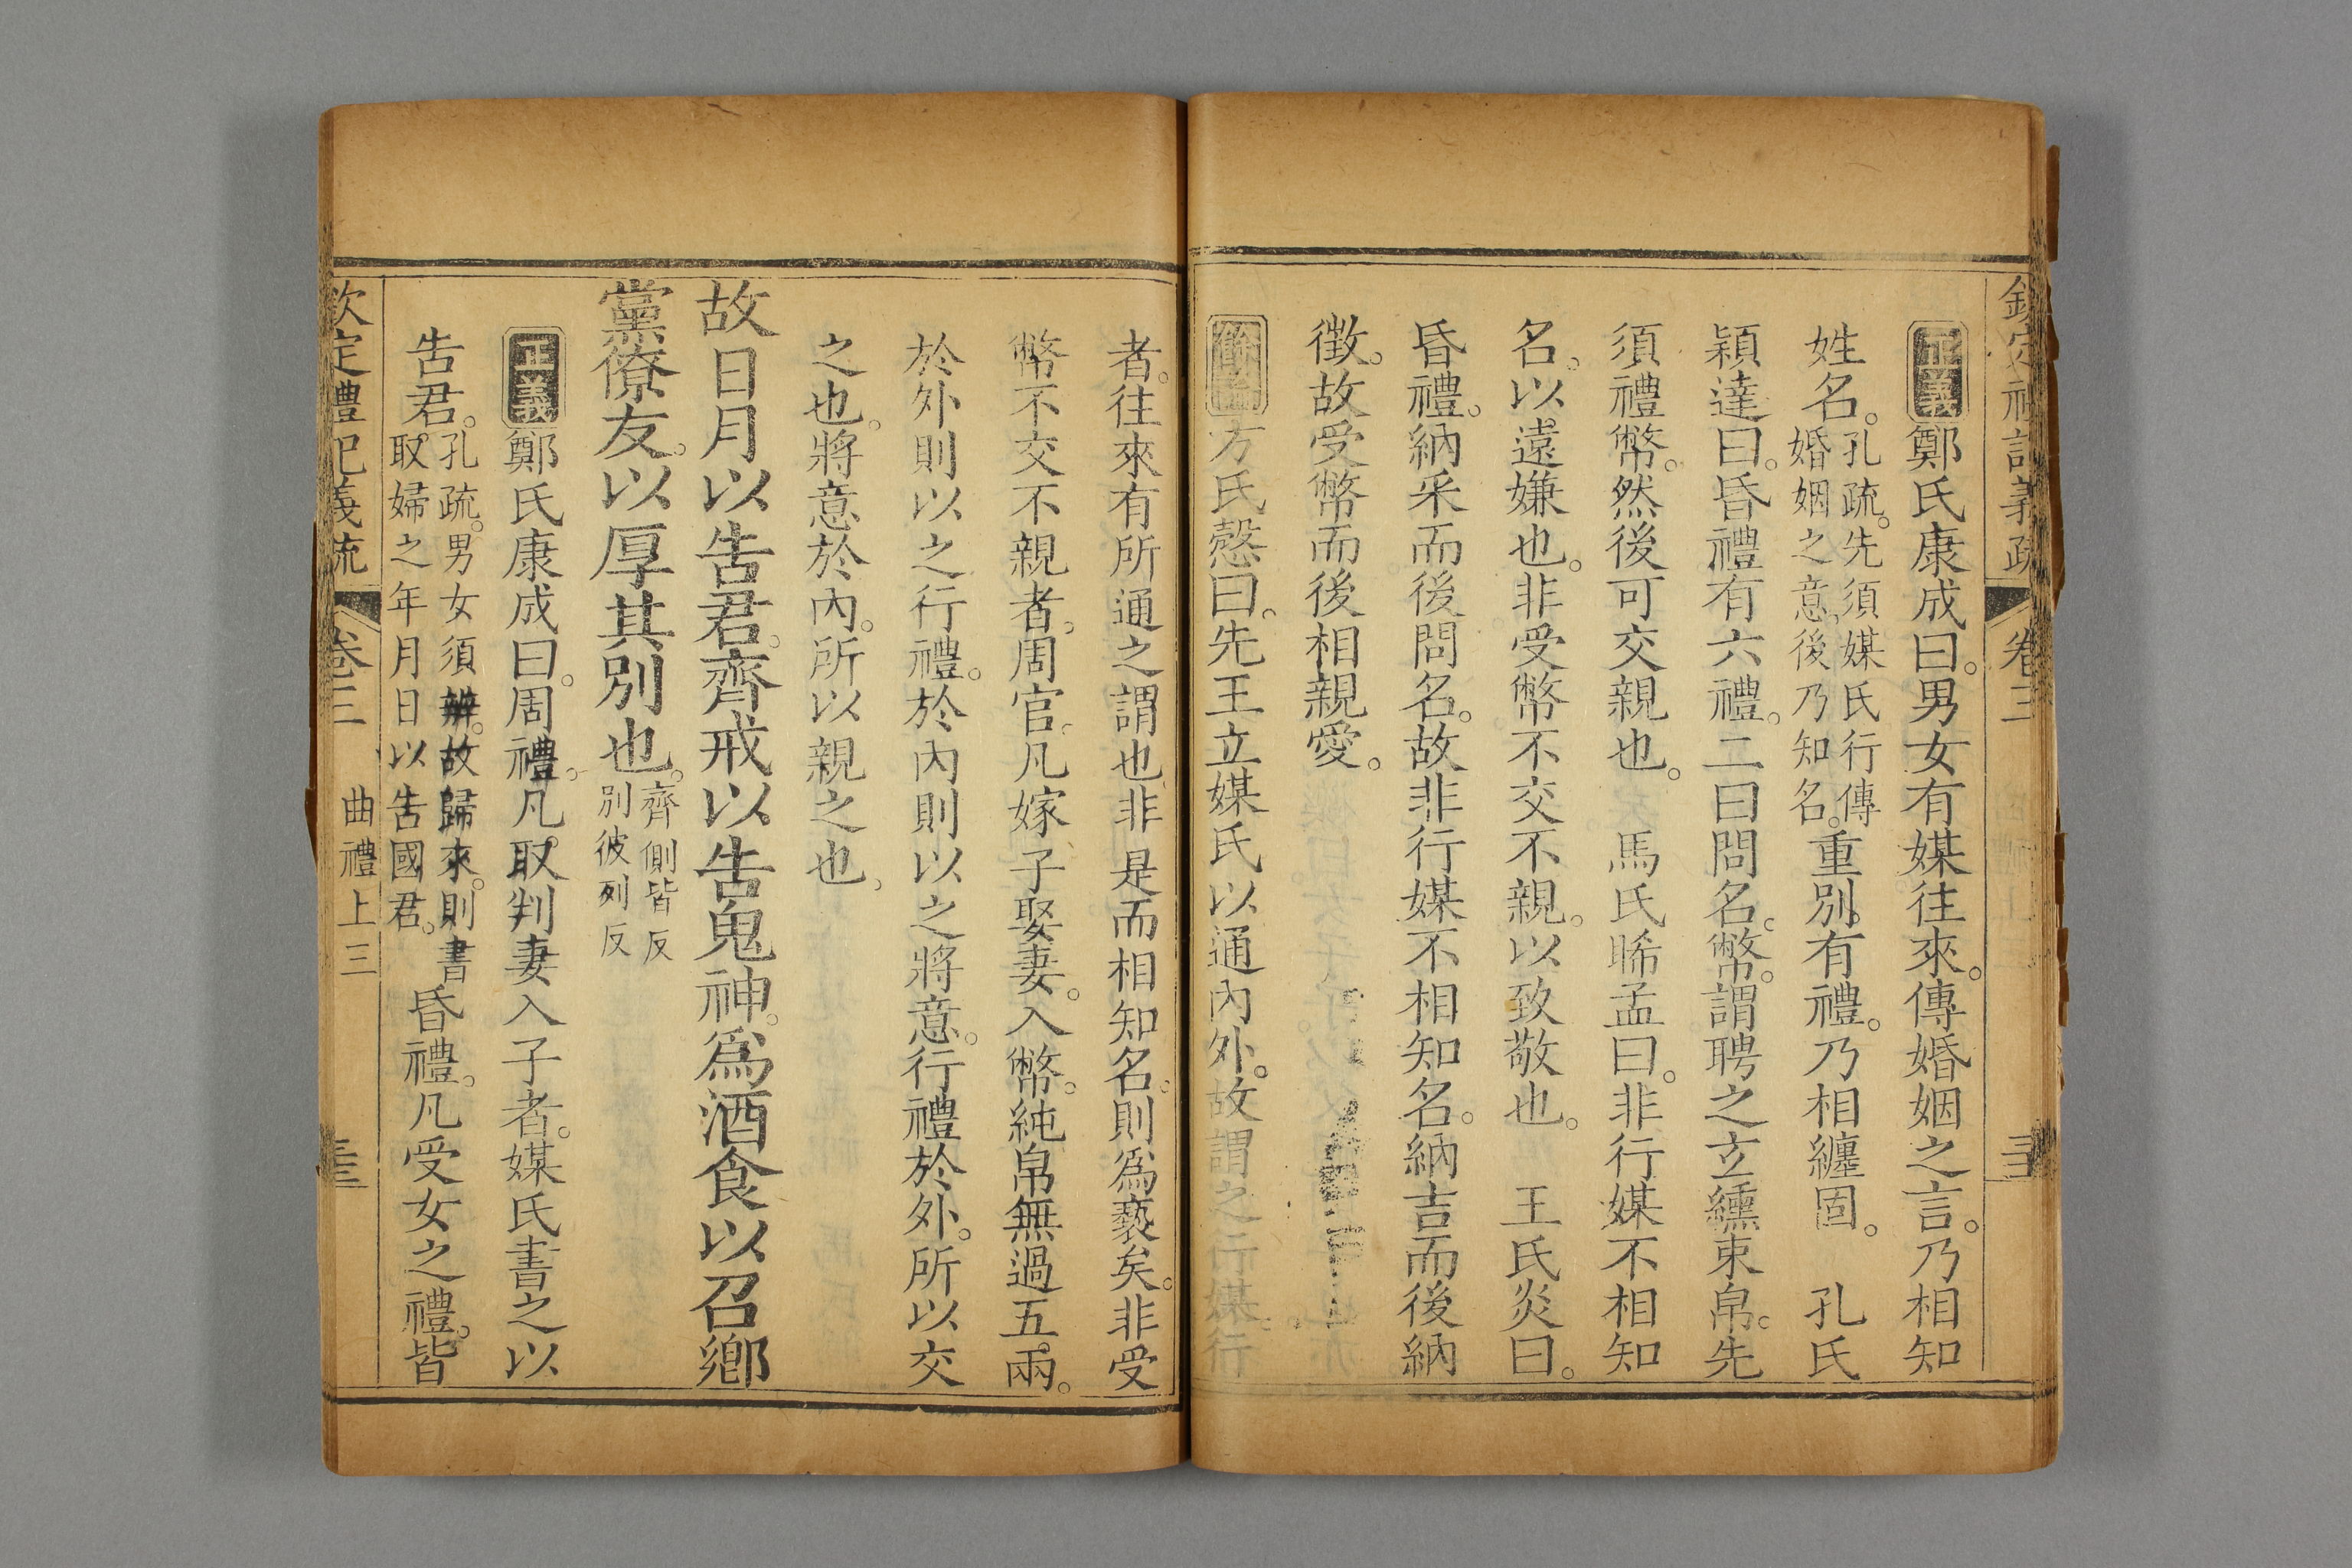 欽定禮記義疏 卷三
正義鄭氏康成曰。男女有媒往來。傳婚姻之言。乃相知
姓名。孔疏。先須媒氏行傳婚姻之意。後乃知名。重別。有禮。乃相纏固。 孔氏
穎達曰。昏禮有六禮。二曰問名。幣。謂聘之玄纁束帛。先
須禮幣。然後可交親也。 馬氏晞孟曰。非行媒不相知
名。以遠嫌也。非受幣不交不親。以致敬也。 王氏炎曰。
昏禮。納采而後問名。故非行媒不相知名。納吉而後納
徵。故受幣而後相親愛。
餘論方氏慤曰。先王立媒氏以通內外。故謂之行媒。行
者。往來有所通之謂也。非是而相知名。則爲褻矣。非受
幣不交不親者。周官。凡嫁子娶妻。入幣。純帛無過五兩。
於外則以之行禮。於內則以之將意。行禮於外。所以交
之也。將意於內。所以親之也。
故日月以告君。齊戒以告鬼神。爲酒食以召鄉
黨僚友。以厚其別也。齊側皆反別彼列反
正義鄭氏康成曰。周禮。凡取判妻入子者。媒氏書之以
告君。孔疏。男女須辨。故歸來。則書取婦之年月日以告國君。昏禮。凡受女之禮。皆
欽定禮記義疏 卷三 曲禮上三